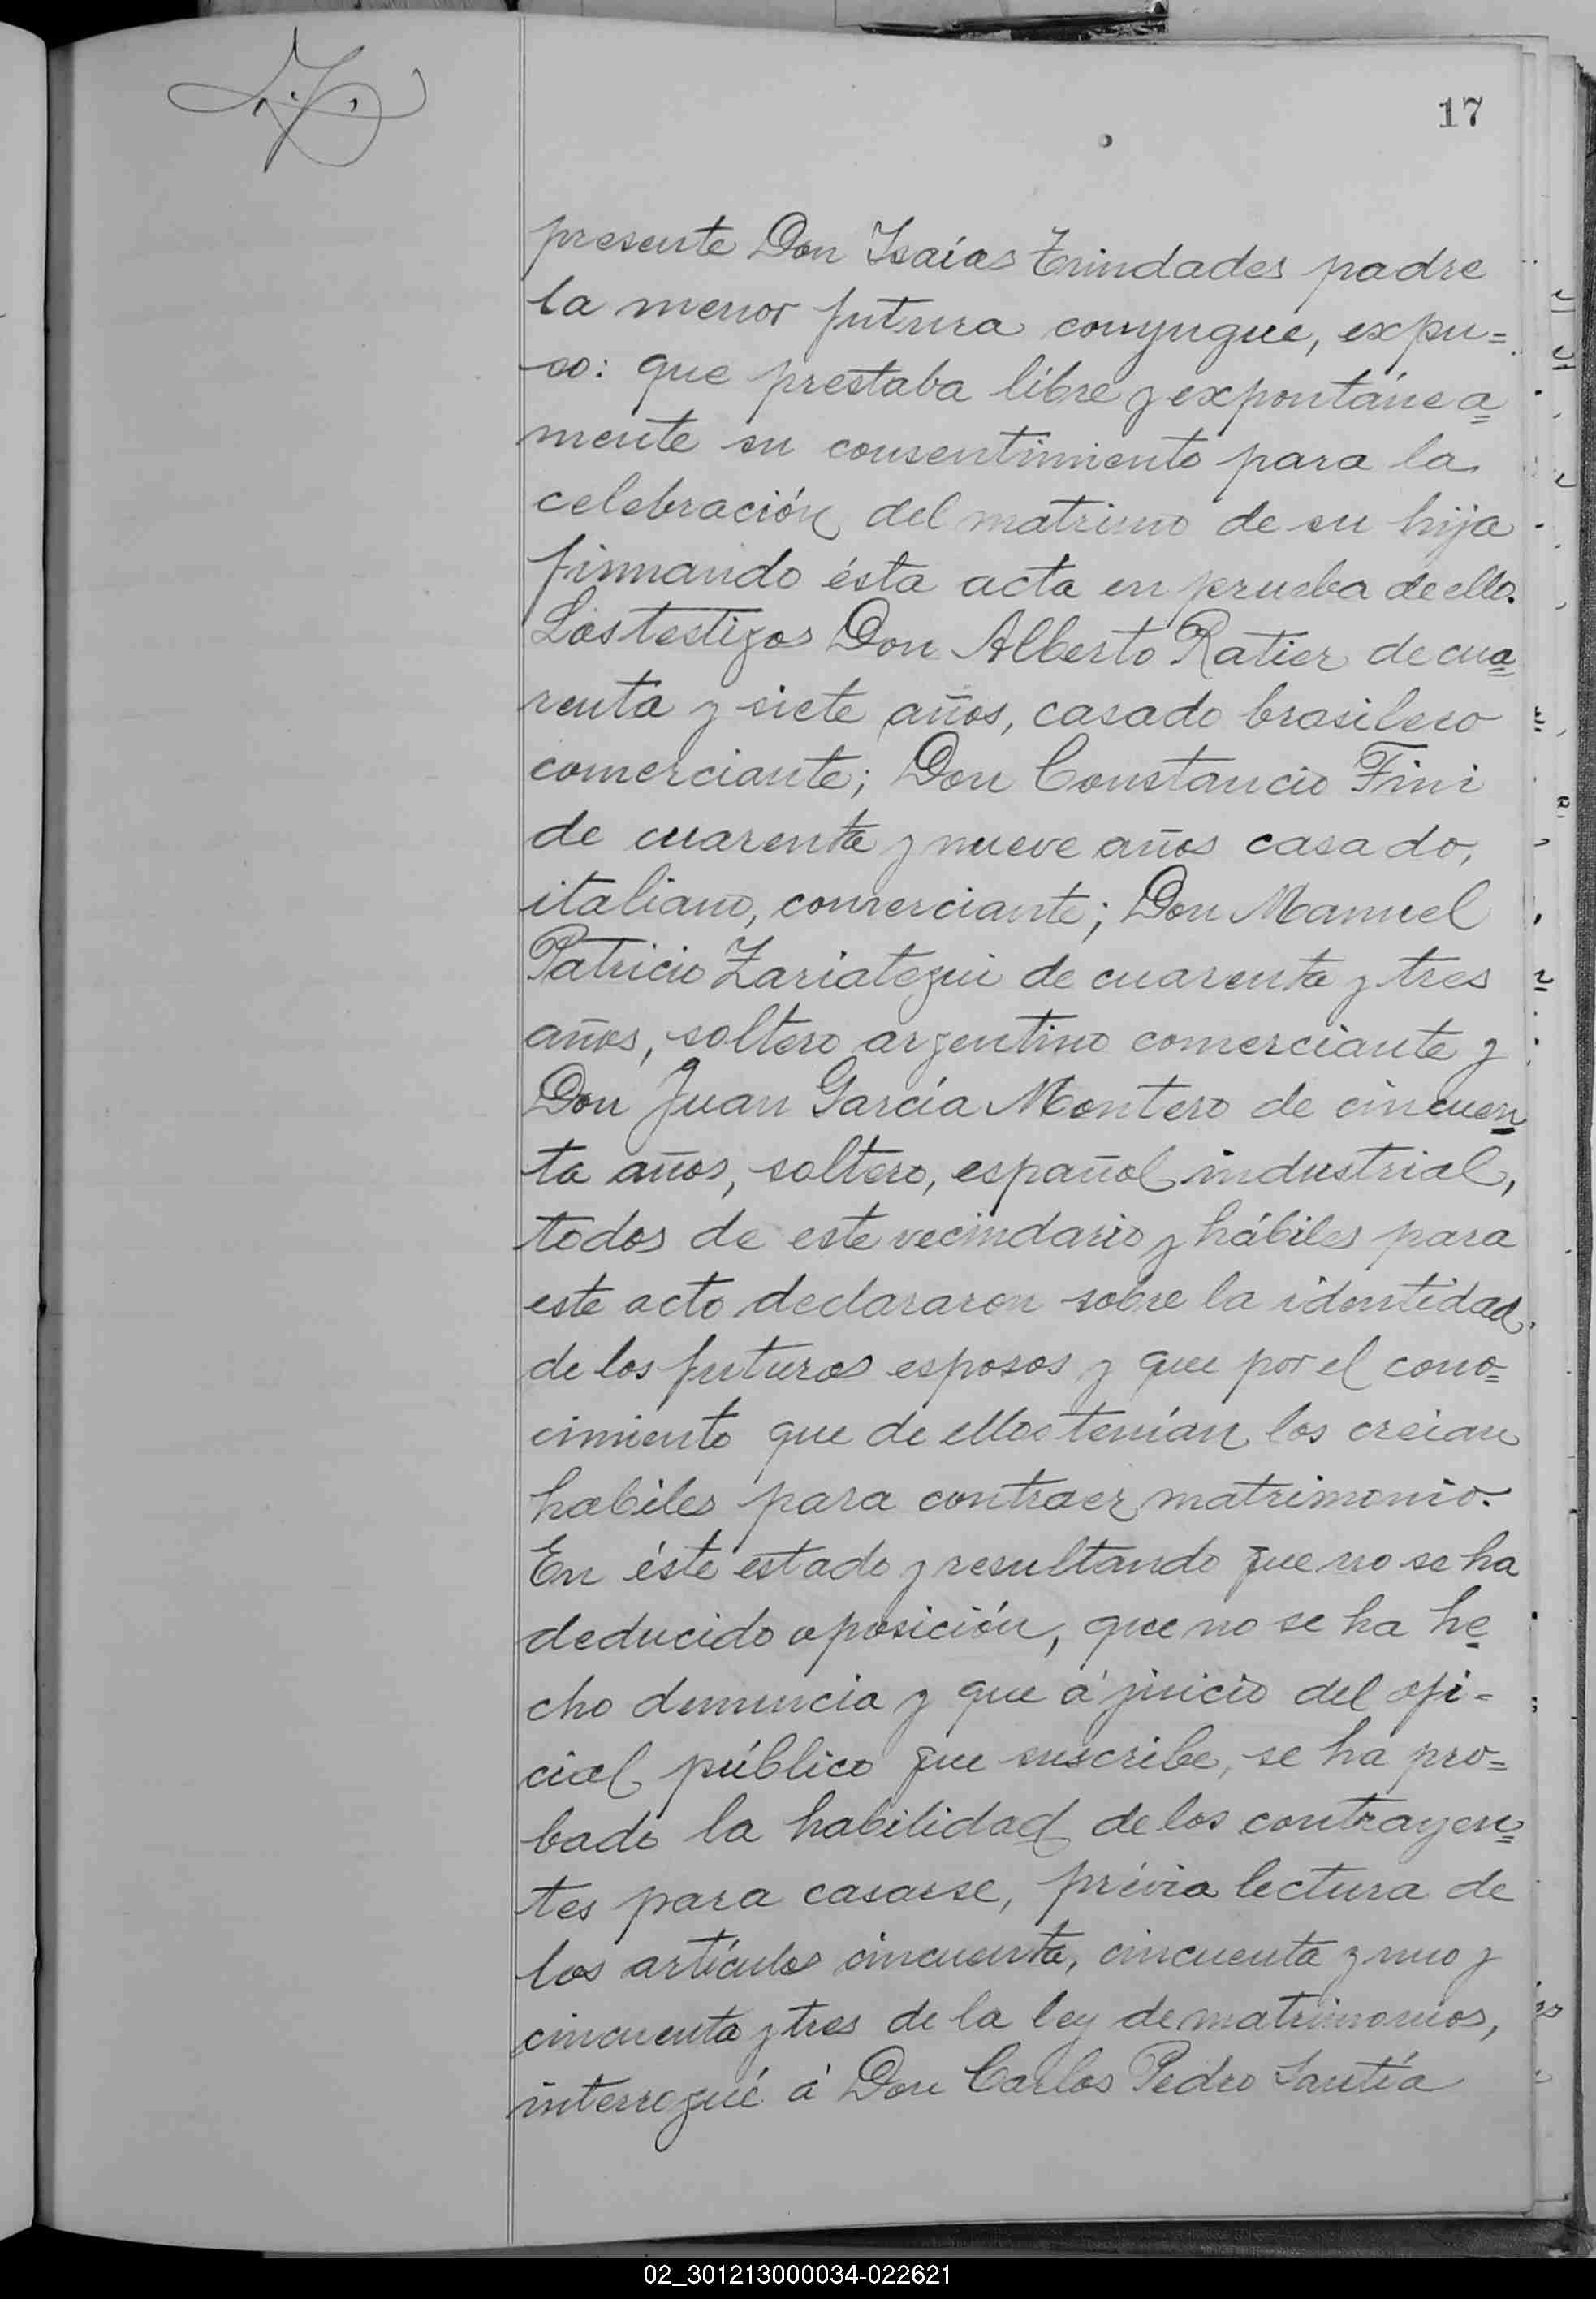 17
presente Don Isaías Trindades padre
la menor futura conyugue, expu=
so: que prestaba líbre y expontánea=
mente su consentimiento para la
celebración del matrimo de su hija
firmando ésta acta en prueba de ello.
Los testigos Don Alberto Ratier de cua=
renta y siete años, casado brasilero
comerciante; Don Constancio Fini
de cuarenta y nueve años casado,
italiano, comerciante; Don Manuel
Patricio Zariategui de cuarenta y tres
años, soltero argentino comerciante y
Don Juan García Montero de cincuen
ta años, soltero, español industrial,
todos de este vecindario y hábiles para
este acto declararon sobre la identidad
de los futuros esposos y que por el cono=
cimiento que de ellos tenían los creian
habiles para contraer matrimonio.
En éste estado y resultando que no se ha
deducido oposición, que no se ha he
cho denuncia y que á juicio del ofi=
cial público que suscribe, se ha pro=
bado la habilidad de los contrayen=
tes para casarse, prévia lectura de
los artículos cincuenta, cincuenta y uno y
cincuenta y tres de la ley de matrimonios,
interrogué á Don Carlos Pedro Santía
02_301213000034-022621